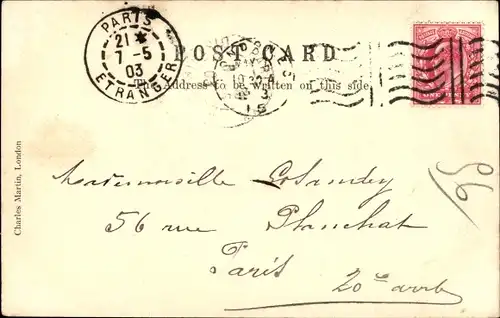 PARIS
21
7-5
03
ETRANGER
POST CARD
The Address to be written on this side
15
Mademoiselle
56 rue Planchat
Paris
20e arrt
Charles Martin, London